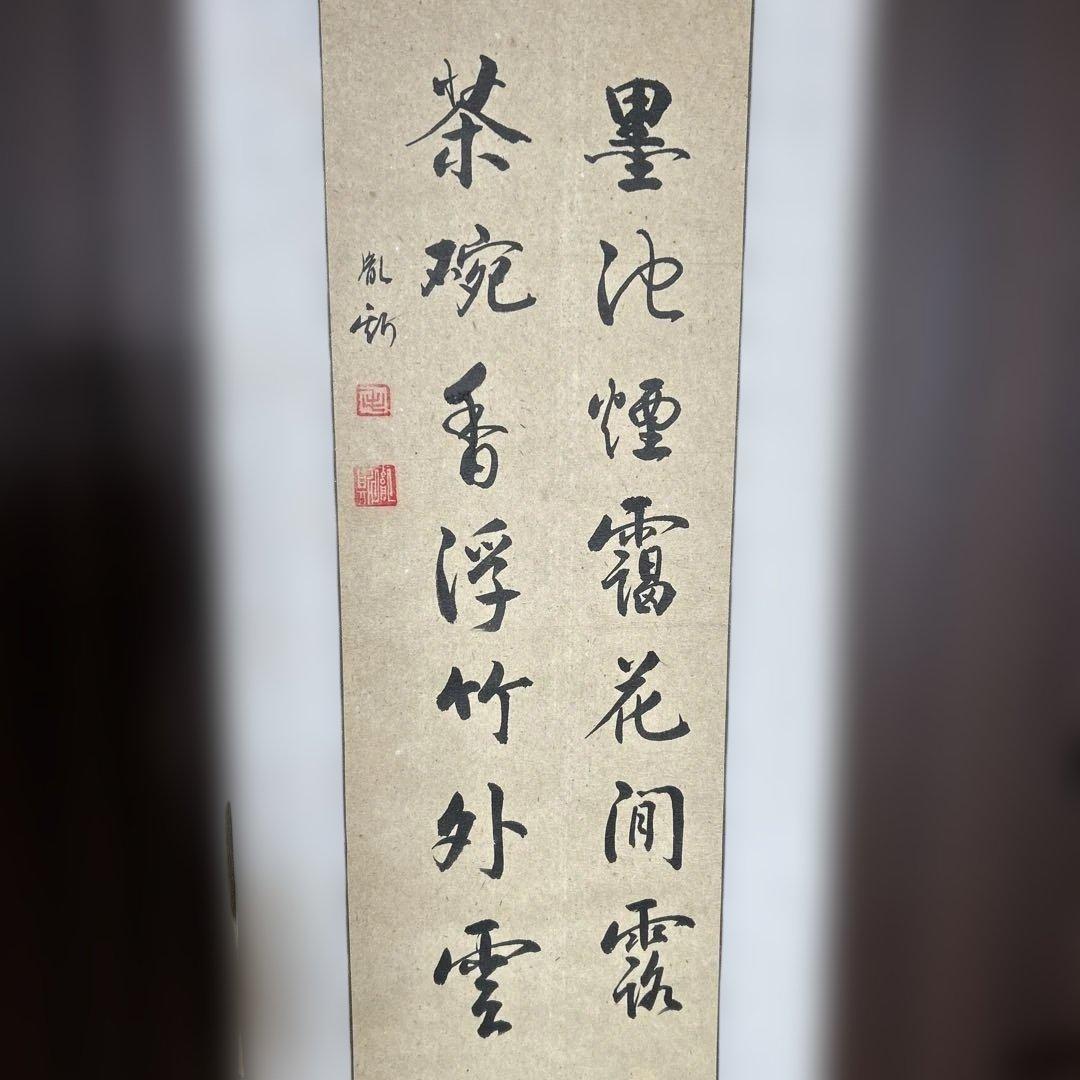 墨池煙靄花間露
茶碗香浮竹外雲
胤